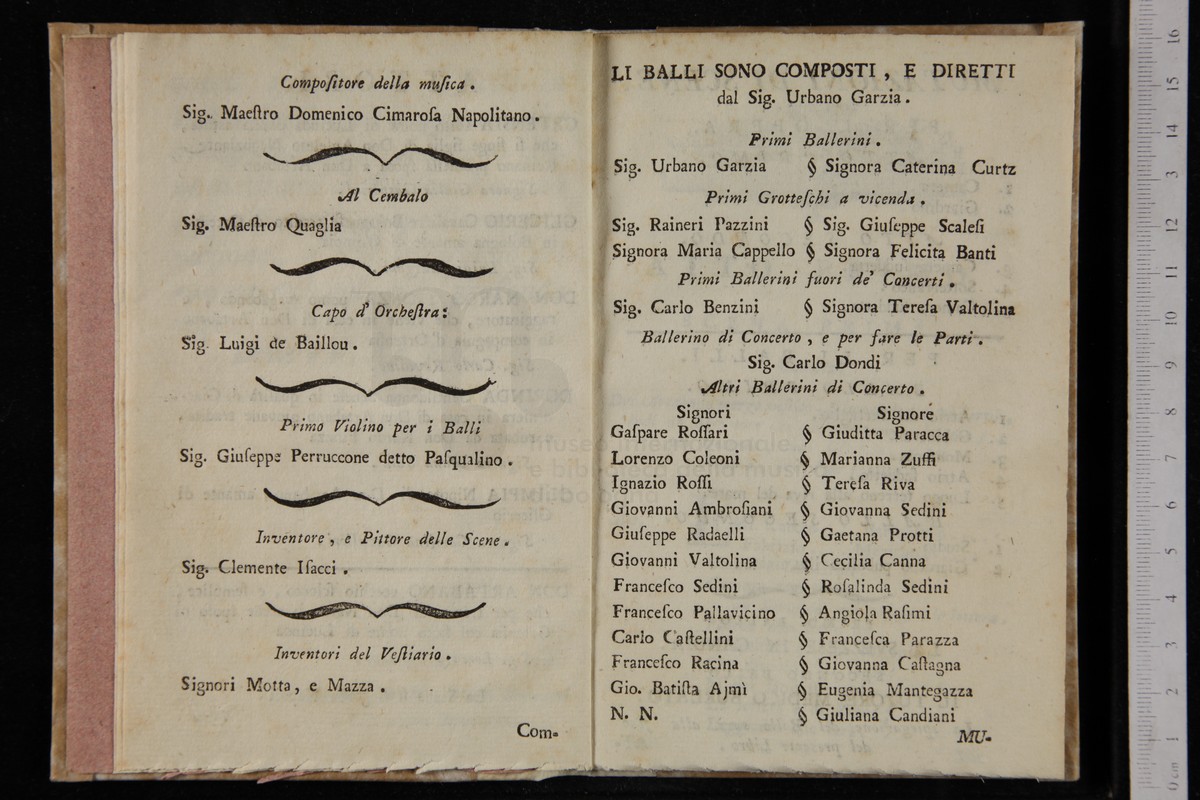 Compoſitore della muſica .
Sig. Maeſtro Domenico Cimaroſa Napolitano .
Al Cembalo
Sig. Maeſtro Quaglia
Capo d' Orcheſtra :
Sig. Luigi de Baillou .
Primo Violino per i Balli
Sig. Giuſeppe Perruccone detto Paſqualino .
Inventore , e Pittore delle Scene .
Sig. Clemente Iſacci .
Inventori del Veſtiario .
Signori Motta , e Mazza .
Com-
LI BALLI SONO COMPOSTI , E DIRETTI
dal Sig. Urbano Garzia .
Primi Ballerini .
Sig. Urbano Garzia § Signora Caterina Curtz
Primi Grotteſchi a vicenda .
Sig. Raineri Pazzini § Sig. Giuſeppe Scaleſi
Signora Maria Cappello § Signora Felicita Banti
Primi Ballerini fuori de' Concerti .
Sig. Carlo Benzini § Signora Tereſa Valtolina
Ballerino di Concerto , e per fare le Parti .
Sig. Carlo Dondi
Altri Ballerini di Concerto .
Signori Signore
Gaſpare Roſſari § Giuditta Paracca
Lorenzo Coleoni § Marianna Zuffi
Ignazio Roſſi § Tereſa Riva
Giovanni Ambroſiani § Giovanna Sedini
Giuſeppe Radaelli § Gaetana Protti
Giovanni Valtolina § Cecilia Canna
Franceſco Sedini § Roſalinda Sedini
Franceſco Pallavicino § Angiola Raſimi
Carlo Caſtellini § Franceſca Parazza
Franceſco Racina § Giovanna Caſtagna
Gio. Batiſta Ajmì § Eugenia Mantegazza
N. N. § Giuliana Candiani
MU-